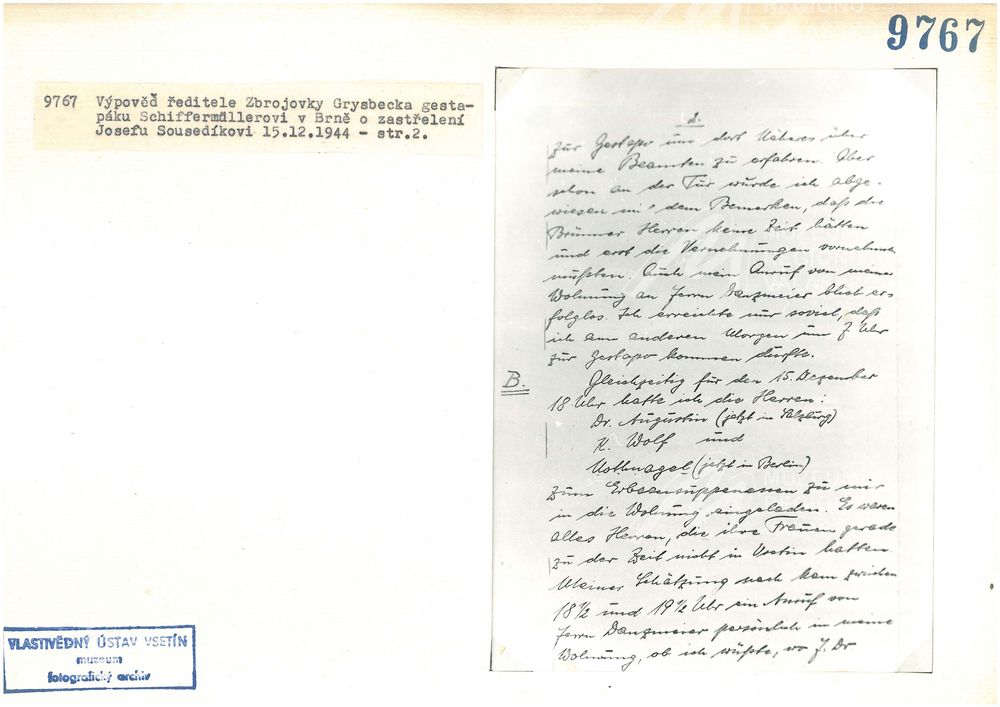 9767
9767 Výpověď ředitele Zbrojovky Grysbecka gesta-
páku Schiffermüllerovi v Brně o zastřelení
Josefu Sousedíkovi 15.12.1944 - str.2.
2.
zur Gestapo um dort Näheres über
meine Beamten zu erfahren. Aber
schon an der Tür wurde ich abge-
wiesen mit dem Bemerken, daß die
Brünner Herren keine Zeit hätten
und erst die Vernehmungen vornehmen
müßten. Auch mein Anruf von meiner
Wohnung an Herrn Danzmeier blieb er-
folglos. Ich erreichte nur soviel, daß
ich am anderen Morgen um 7 Uhr
zur Gestapo kommen durfte.
B.
Gleichzeitig für den 15. Dezember
18 Uhr hatte ich die Herren:
Dr. Augustin (jetzt in Salzburg)
K. Wolf und
Nothnagel (jetzt in Berlin)
zum Erbsensuppenessen zu mir
in die Wohnung eingeladen. Es waren
alles Herren, die ihre Frauen gerade
zu der Zeit nicht in Vsetin hatten.
Meiner Schätzung nach kam zwischen
18½ und 19½ Uhr ein Anruf von
Herrn Danzmeier persönlich in meine
Wohnung, ob ich wüßte, wo H. Dr
VLASTIVĚDNÝ ÚSTAV VSETÍN
muzeum
fotografický archiv